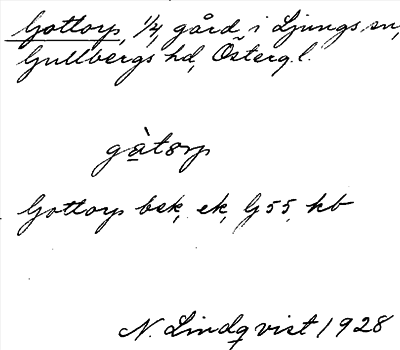 Gottorp, 1/4, gård i Ljungs sn,
Gullbergs hd, Österg.l.
gàtorp
Gottorp bsk, ek, G 55, kb
N. Lindqvist 1928